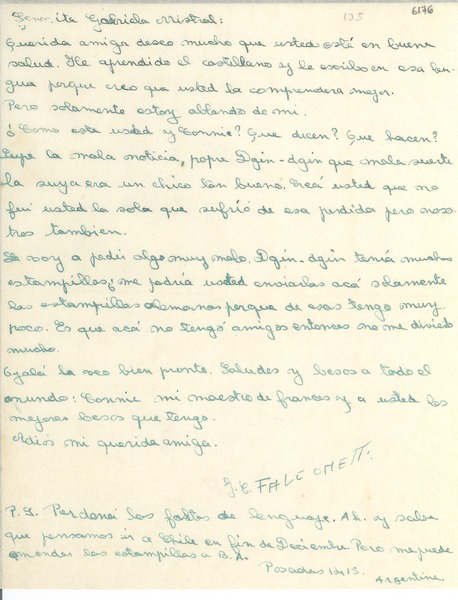 6176
135
Señorita Gabriela Mistral:
Querida amiga deseo mucho que usted esté en buena
salud. He aprendido el castellano y le escribo en esa len-
gua porque creo que usted la comprendera mejor.
Pero solamente estoy ablando de mi.
¿Como esta usted y Connie? Que dicen? Que hacen?
Supe la mala noticia, popre Dgin-dgin que mala suerte
la suya era un chico tan bueno. Creá usted que no
fué usted la sola que sufrió de esa perdida pero noso-
tros tambien.
Le voy a pedir algo muy malo. Dgin-dgin tenia muchas
estampillas ¿ me podria usted enviarlas acá solamente
las estampillas alemanas porque de esas tengo muy
poco. Es que acá no tengo amigos entonces no me divierto
mucho.
Ojalá la veo bien pronto. Saludes y besos a todo el
mundo: Connie mi maestro de frances y a usted los
mejores besos que tengo.
Adiós mi querida amiga.
J.C. FALCONETTI.
P.S. Perdoná las faltas de lenguaje. Ah. y sabe
que pensamos ir a Chile en fin de Deciembre. Pero me puede
mandar las estampillas a B.A.
Posadas 1215
Argentine